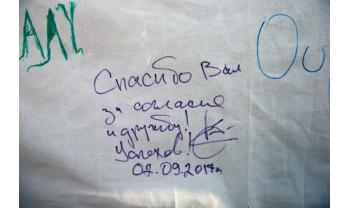 АЛУ
Оо
Спасибо Вам
за согласие
и дружбу!
Успехов!
08.09.2017г.